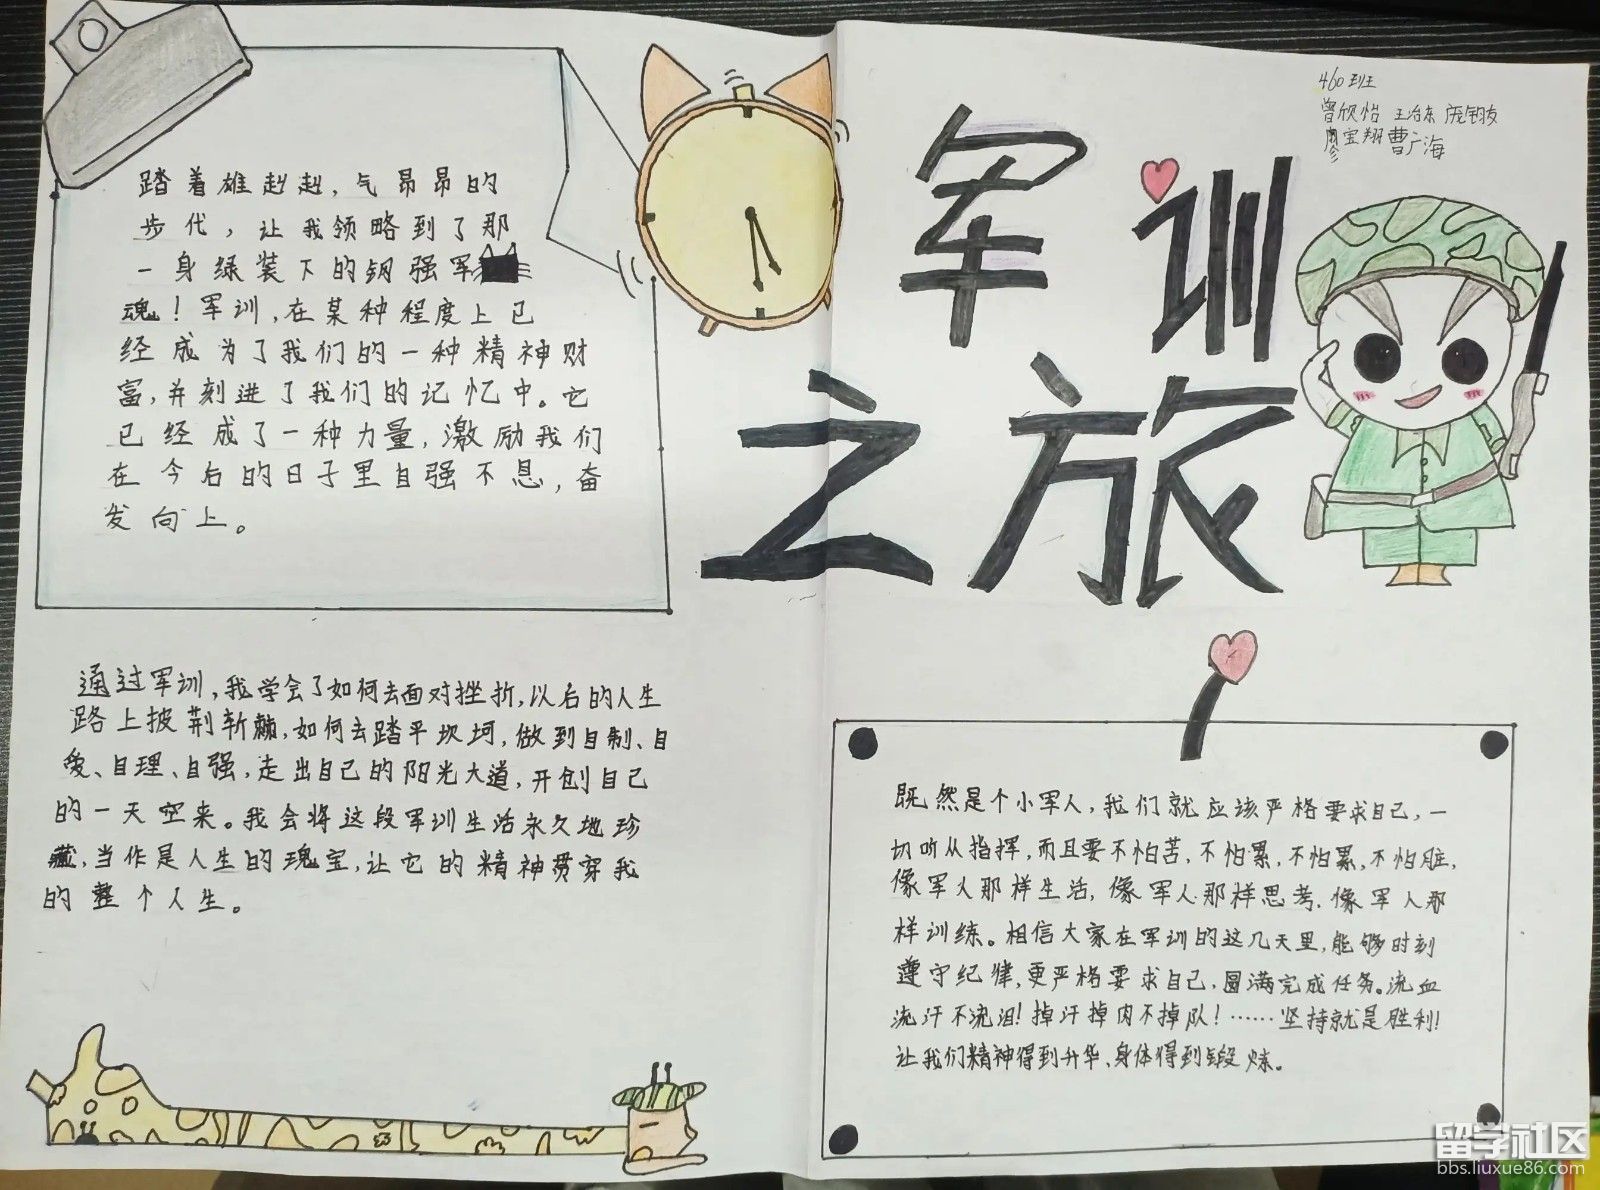 460班
曾欣怡 王治东 庞钧友
廖宝翔 曹广海
军训
之旅
踏着雄赳赳，气昂昂的
步代，让我领略到了那
一身绿装下的钢强军
魂！军训，在某种程度上已
经成为了我们的一种精神财
富，并刻进了我们的记忆中。它
已经成了一种力量，激励我们
在今后的日子里自强不息，奋
发向上。
通过军训，我学会了如何去面对挫折，以后的人生
路上披荆斩棘，如何去踏平坎坷，做到自制、自
爱、自理、自强，走出自己的阳光大道，开创自己
的一天空来。我会将这段军训生活永久地珍
藏，当作是人生的瑰宝，让它的精神贯穿我
的整个人生。
既然是个小军人，我们就应该严格要求自己，一
切听从指挥，而且要不怕苦，不怕累，不怕累，不怕脏，
像军人那样生活，像军人那样思考，像军人那
样训练。相信大家在军训的这几天里，能够时刻
遵守纪律，更严格要求自己，圆满完成任务。流血
流汗不流泪！掉汗掉肉不掉队！……坚持就是胜利！
让我们精神得到升华、身体得到锻炼。
留学社区
bbs.liuxue86.com